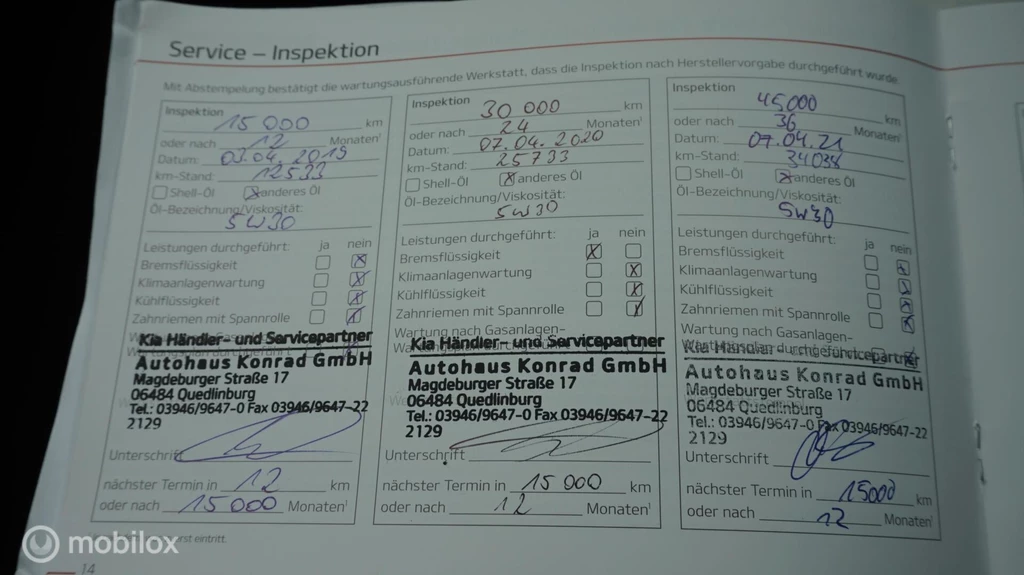 Service – Inspektion
Mit Abstempelung bestätigt die wartungsausführende Werkstatt, dass die Inspektion nach Herstellervorgabe durchgeführt wurde.
Inspektion 15 000 km
oder nach 12 Monaten¹
Datum: 03.04.2019
km-Stand: 12533
Shell-Öl x anderes Öl
Öl-Bezeichnung/Viskosität:
5W30
Leistungen durchgeführt: ja nein
Bremsflüssigkeit x
Klimaanlagenwartung x
Kühlflüssigkeit x
Zahnriemen mit Spannrolle x
Kia Händler- und Servicepartner
Autohaus Konrad GmbH
Magdeburger Straße 17
06484 Quedlinburg
Tel.: 03946/9647-0 Fax 03946/9647-22
2129
Unterschrift
nächster Termin in 12 km
oder nach 15 000 Monaten¹
Inspektion 30 000 km
oder nach 24 Monaten¹
Datum: 07.04.2020
km-Stand: 25733
Shell-Öl x anderes Öl
Öl-Bezeichnung/Viskosität:
5W30
Leistungen durchgeführt: ja nein
Bremsflüssigkeit x
Klimaanlagenwartung x
Kühlflüssigkeit x
Zahnriemen mit Spannrolle x
Wartung nach Gasanlagen-
Kia Händler- und Servicepartner
Autohaus Konrad GmbH
Magdeburger Straße 17
06484 Quedlinburg
Tel.: 03946/9647-0 Fax 03946/9647-22
2129
Unterschrift
nächster Termin in 15 000 km
oder nach 12 Monaten¹
Inspektion 45000 km
oder nach 36 Monaten¹
Datum: 07.04.21
km-Stand: 34038
Shell-Öl x anderes Öl
Öl-Bezeichnung/Viskosität:
5W30
Leistungen durchgeführt: ja nein
Bremsflüssigkeit x
Klimaanlagenwartung x
Kühlflüssigkeit x
Zahnriemen mit Spannrolle x
Wartung nach Gasanlagen-
Wartungsplan durchgeführt x
Kia Händler- und Servicepartner
Autohaus Konrad GmbH
Magdeburger Straße 17
06484 Quedlinburg
Tel.: 03946/9647-0 Fax 03946/9647-22
2129
Unterschrift
nächster Termin in 15000 km
oder nach 12 Monaten¹
eintritt.
14
mobilox